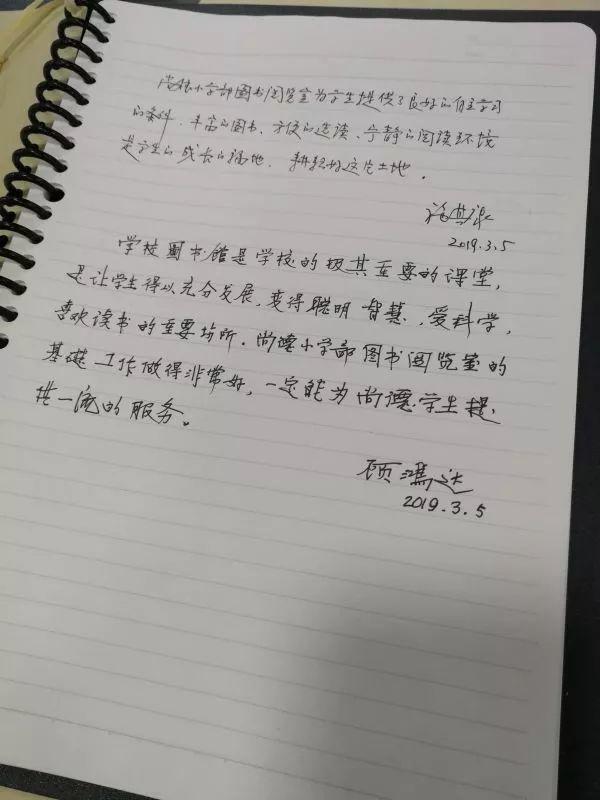 尚德小学部图书阅览室为学生提供了良好的自主学习
的条件。丰富的图书、方便的选读、宁静的阅读环境
是学生的成长的福地。耕耘好这片土地。
2019.3.5
学校图书馆是学校的极其重要的课堂，
是让学生得以充分发展，变得聪明 智慧，爱科学，
喜欢读书的重要场所。尚德小学部图书阅览室的
基础工作做得非常好，一定能为尚德学生提
供一流的服务。
顾鸿达
2019.3.5